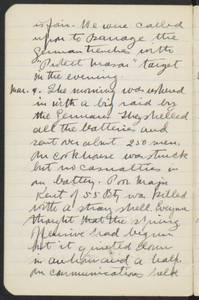 fair. We were called
upon to barrage the
German trenches with
"Protest Mason" target
in the evening.
Mar. 9. The morning was ushered
in with a big raid by
the Germans. They shelled
all the batteries and
sent over abt. 250 men.
Our cookhouse was struck
but no casualties in
our battery. Poor Major
Kent of 55 Bty was killed
with a stray shell. Everyone
thought that the spring
offensive had begun
but it quieted down
in an hour and a half.
Our communication